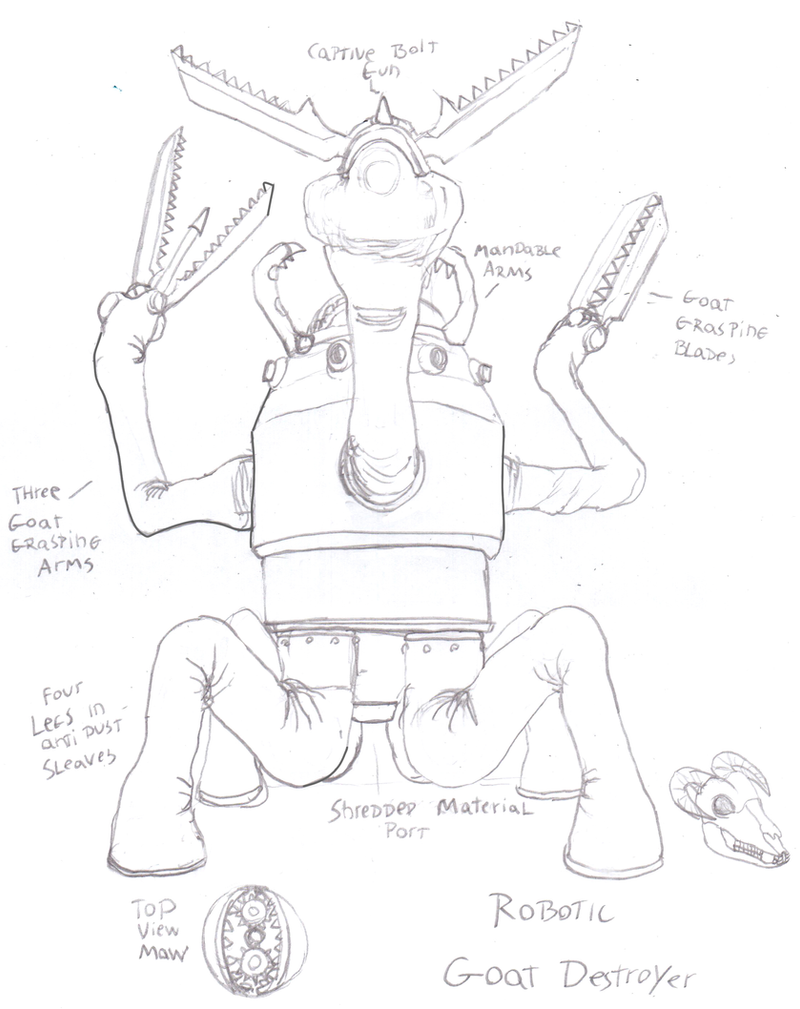 Captive Bolt
Gun
Mandable
Arms
Goat
Grasping
Blades
Three
Goat
Grasping
Arms
Four
Legs in
anti Dust
Sleaves
Shredded Material
Port
Top
View
Maw
Robotic
Goat Destroyer